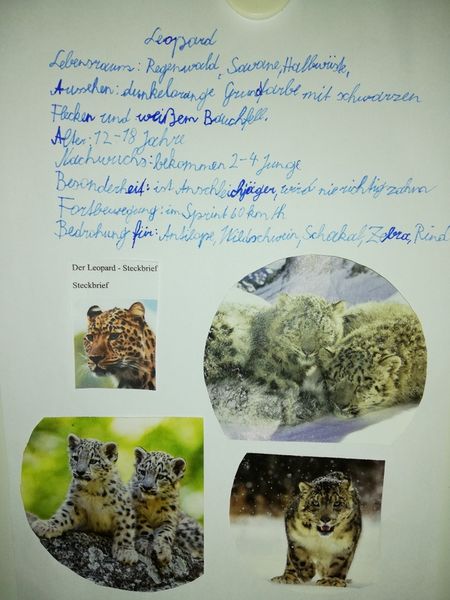 Leopard
Lebensraum: Regenwald, Savane, Halbwüste,
Aussehen: dunkelorange Grundfarbe mit schwarzen
Flecken und weißem Bauchfell.
Alter: 12-18 Jahre
Nachwuchs: bekommen 2-4 Junge
Besonderheit: ist Anschleichjäger, wird nie richtig zahm
Fortbewegung: im Sprint 60 km/h
Bedrohung für: Antilope, Wildschwein, Schakal, Zebra, Rind
Der Leopard - Steckbrief
Steckbrief